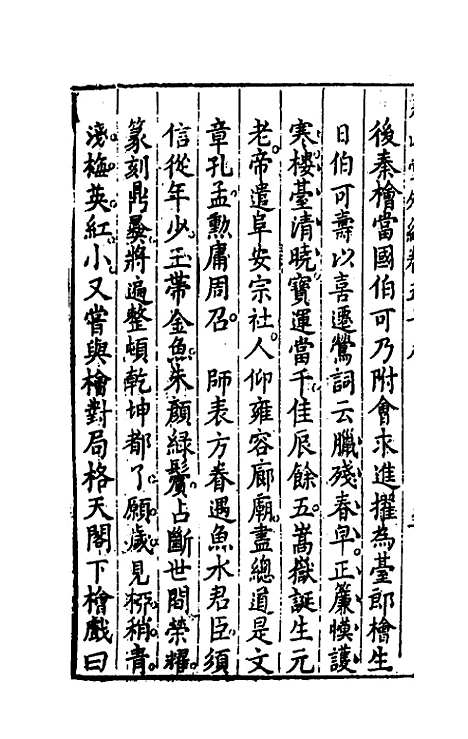 後秦檜當國伯可乃附會求進擢為臺郎檜生
日伯可壽以喜遷鶯詞云臘殘春早正簾幙護
寒樓臺清曉寶運當千佳辰餘五嵩嶽誕生元
老帝遣阜安宗社人仰雍容廊廟盡總道是文
章孔孟勲庸周召　師表方眷遇魚水君臣須
信從年少玉帶金魚朱顔綠鬢占斷世間榮耀
篆刻鼎彝將遍整頓乾坤都了願歲見栁稍青
淺梅英紅小又嘗與檜對局格天閣下檜戲曰